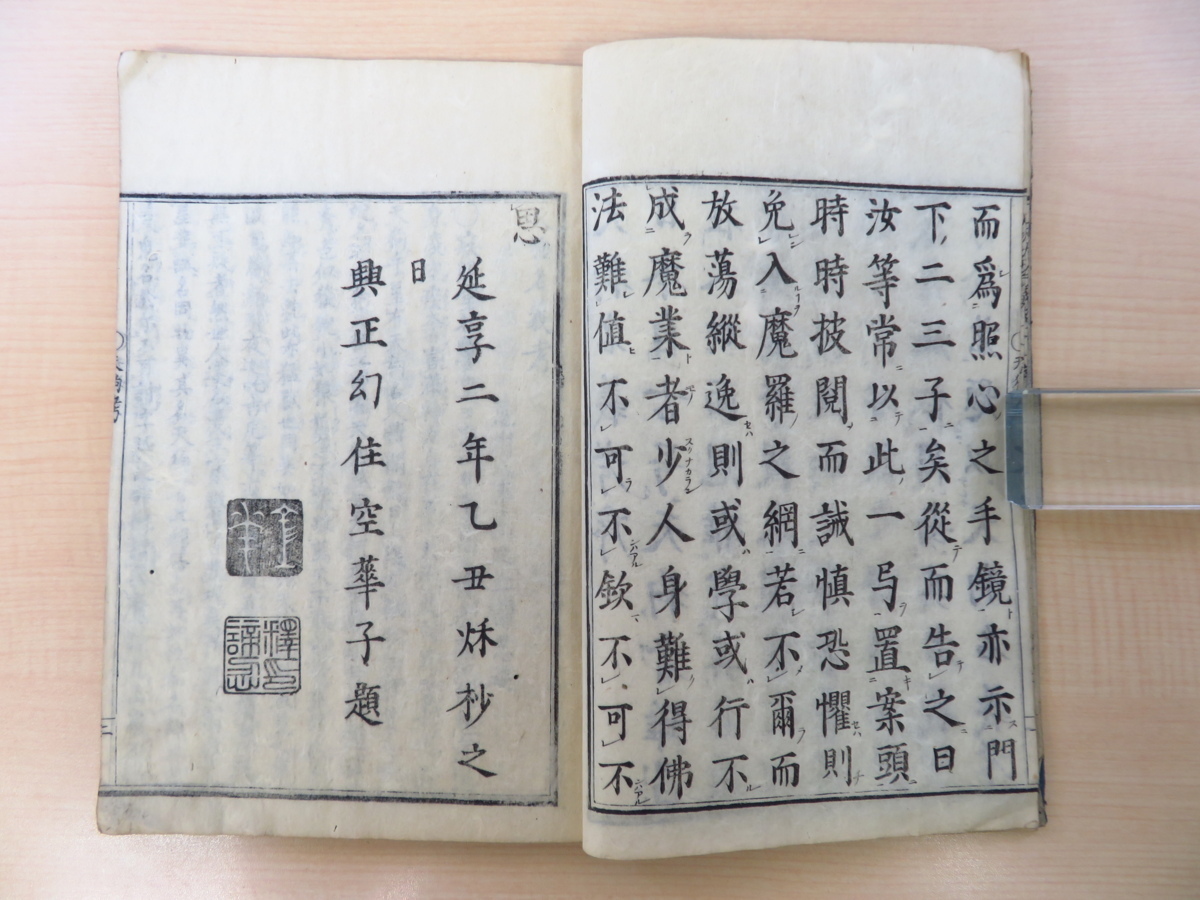 而爲照心之手鏡亦示門
下二三子矣從而告之曰
汝等常以此一弓置案頭
時時披閱而誡慎恐懼則
免入魔羅之網若不爾而
放蕩縱逸則或學或行不
成魔業者少人身難得佛
法難値不可不欽不可不
思
延享二年乙丑秌杪之
日
興正幻住空華子題
釋
諦忍